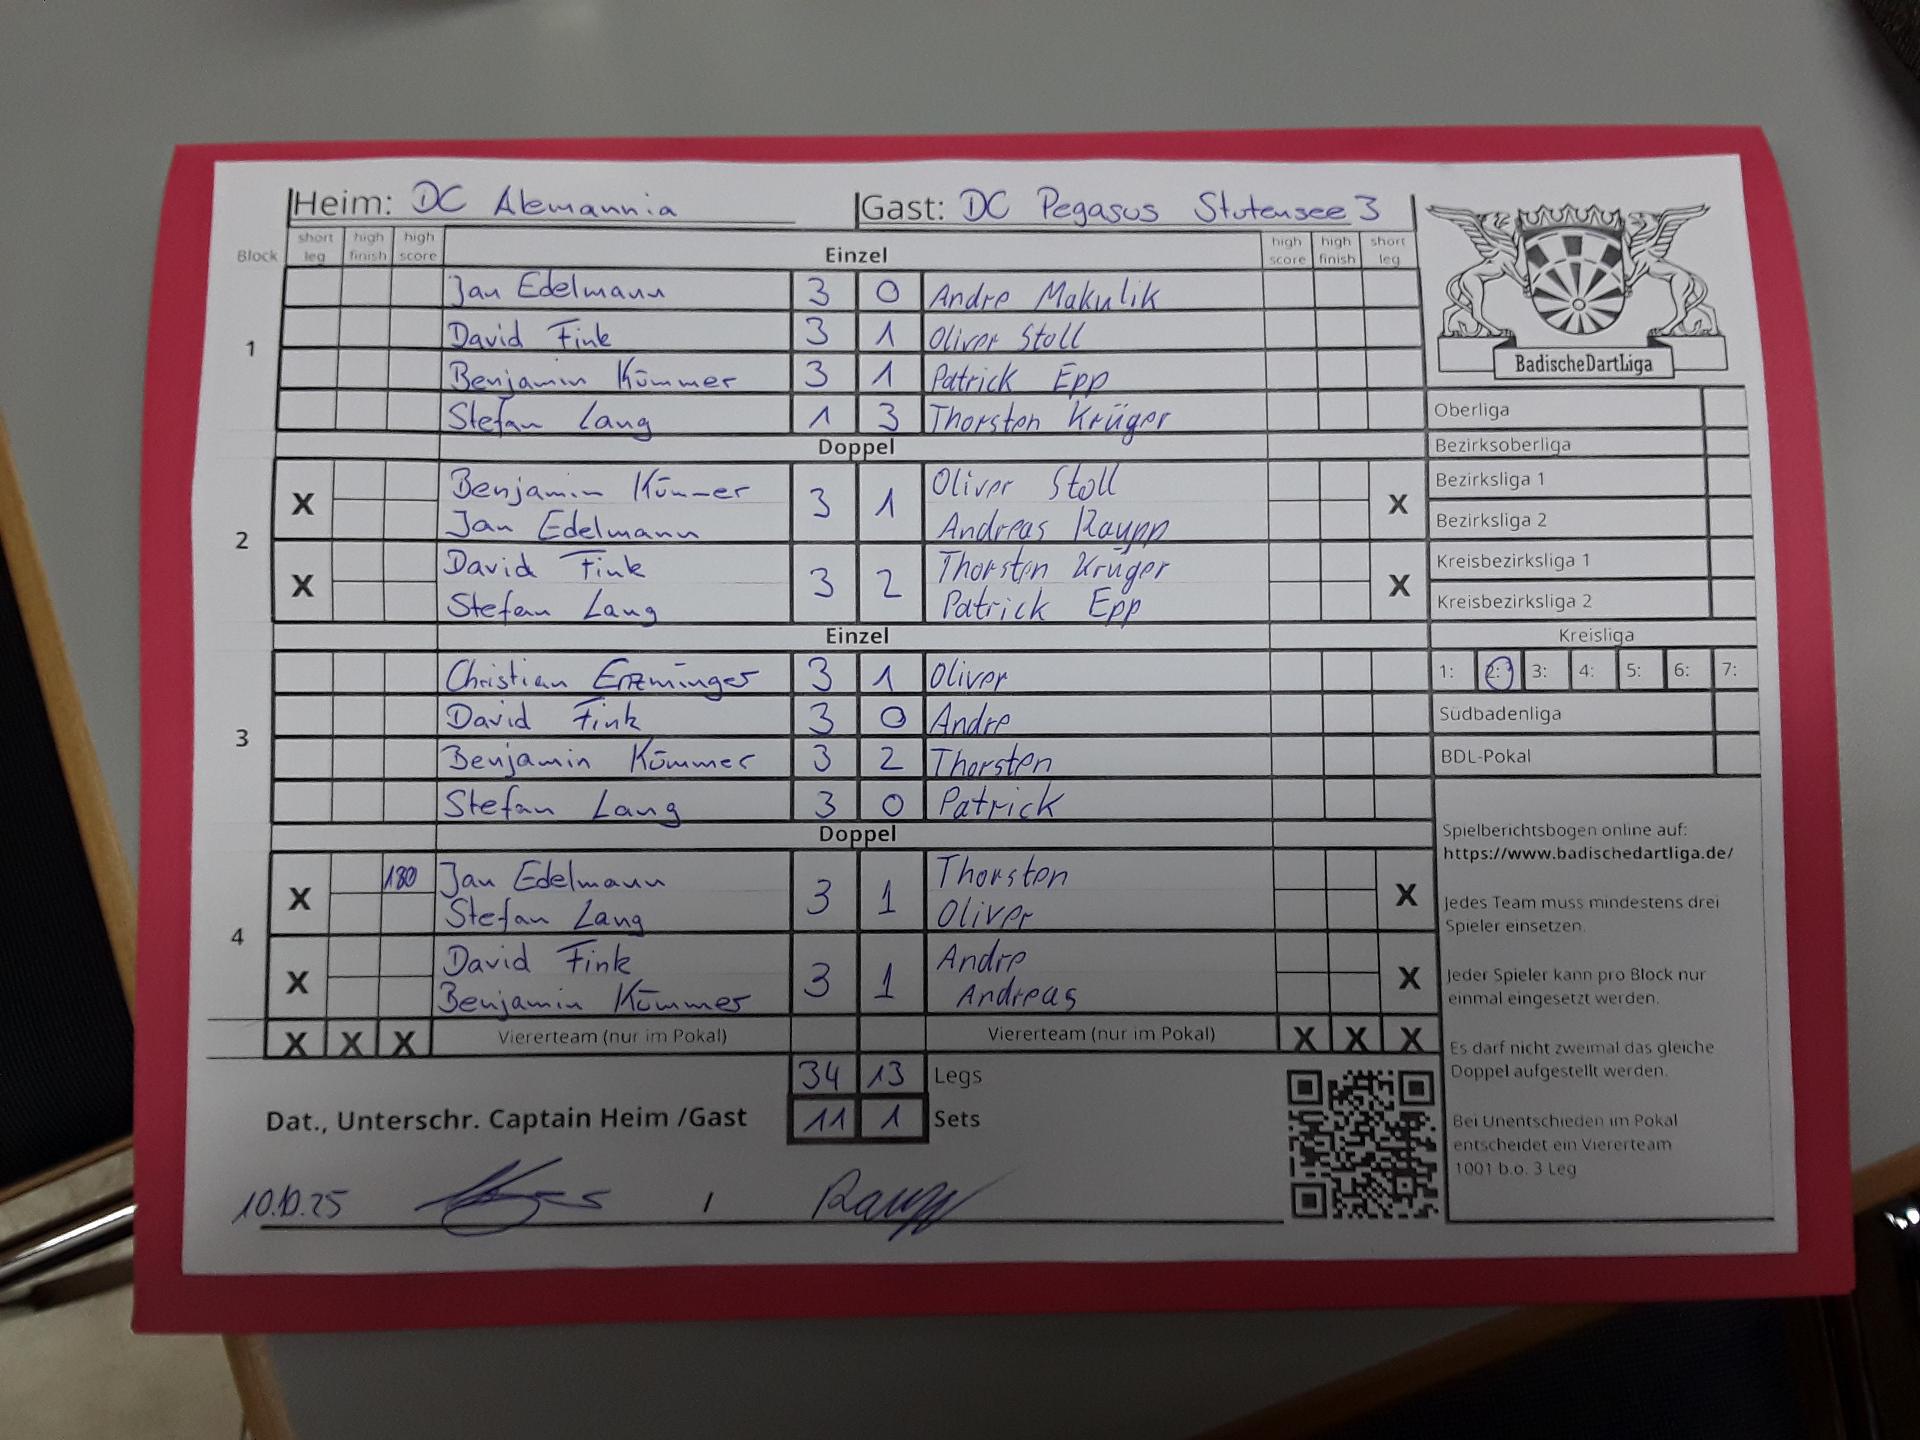 Heim: DC Alemannia Gast: DC Pegasus Stutensee 3
Block short leg high finish high score Einzel high score high finish short leg
1
Jan Edelmann 3 0 Andre Makulik
David Fink 3 1 Oliver Stoll
Benjamin Kümmer 3 1 Patrick Epp
Stefan Lang 1 3 Thorsten Krüger
Doppel
2
X Benjamin Kümmer 3 1 Oliver Stoll X
Jan Edelmann Andreas Raupp
X David Fink 3 2 Thorsten Krüger X
Stefan Lang Patrick Epp
Einzel
3
Christian Enzminger 3 1 Oliver
David Fink 3 0 Andre
Benjamin Kümmer 3 2 Thorsten
Stefan Lang 3 0 Patrick
Doppel
4
X 180 Jan Edelmann 3 1 Thorsten X
Stefan Lang Oliver
X David Fink 3 1 Andre X
Benjamin Kümmer Andreas
X X X Viererteam (nur im Pokal) Viererteam (nur im Pokal) X X X
34 13 Legs
Dat., Unterschr. Captain Heim /Gast 11 1 Sets
10.10.25 / Raupp
BadischeDartLiga
Oberliga
Bezirksoberliga
Bezirksliga 1
Bezirksliga 2
Kreisbezirksliga 1
Kreisbezirksliga 2
Kreisliga
1: 2: 3: 4: 5: 6: 7:
Südbadenliga
BDL-Pokal
Spielberichtsbogen online auf:
https://www.badischedartliga.de/
Jedes Team muss mindestens drei
Spieler einsetzen.
Jeder Spieler kann pro Block nur
einmal eingesetzt werden.
Es darf nicht zweimal das gleiche
Doppel aufgestellt werden.
Bei Unentschieden im Pokal
entscheidet ein Viererteam
1001 b.o. 3 Leg